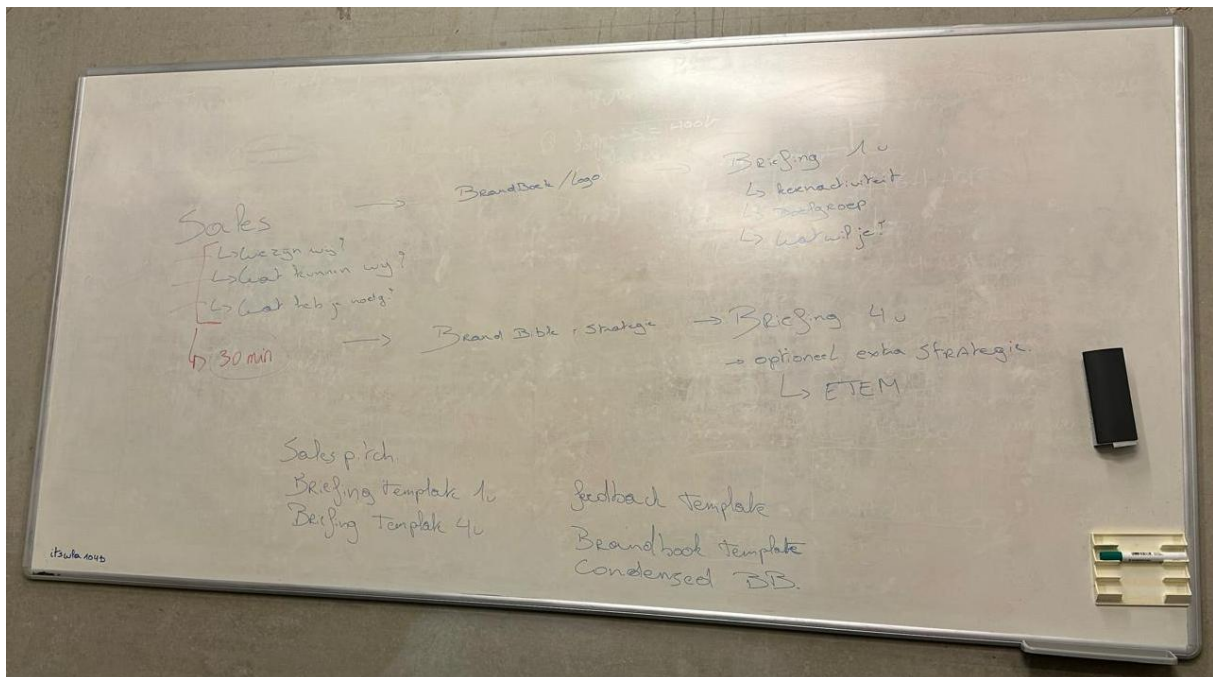 Sales
↳ wie zijn wij?
↳ wat kunnen wij?
↳ wat heb je nodig?
↳ 30 min
→ BrandBoek / Logo
→ Briefing 1u
↳ kernactiviteit
↳ doelgroep
↳ wat wil je?
→ Brand Bible + Strategie
→ Briefing 4u
→ optioneel extra STRAtegie.
↳ ETEM
Sales pitch.
Briefing template 1u
Briefing Template 4u
feedback template
Brandbook template
Condensed BB.